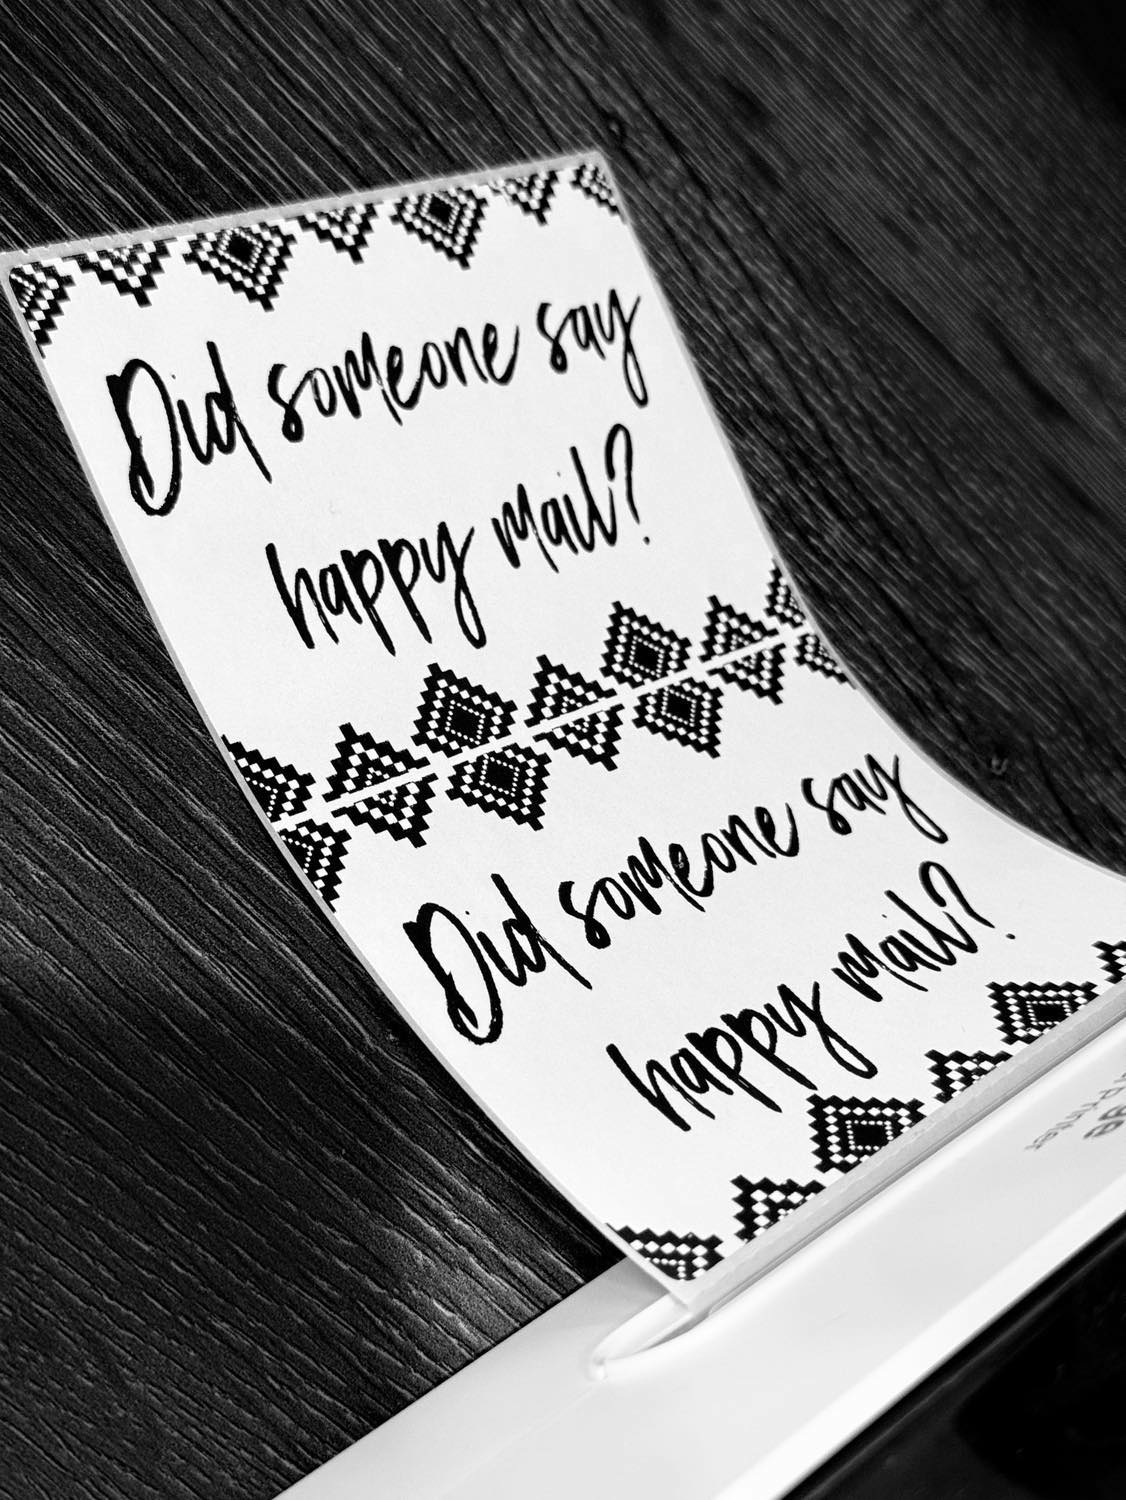 Did someone say
happy mail?
Did someone say
happy mail?